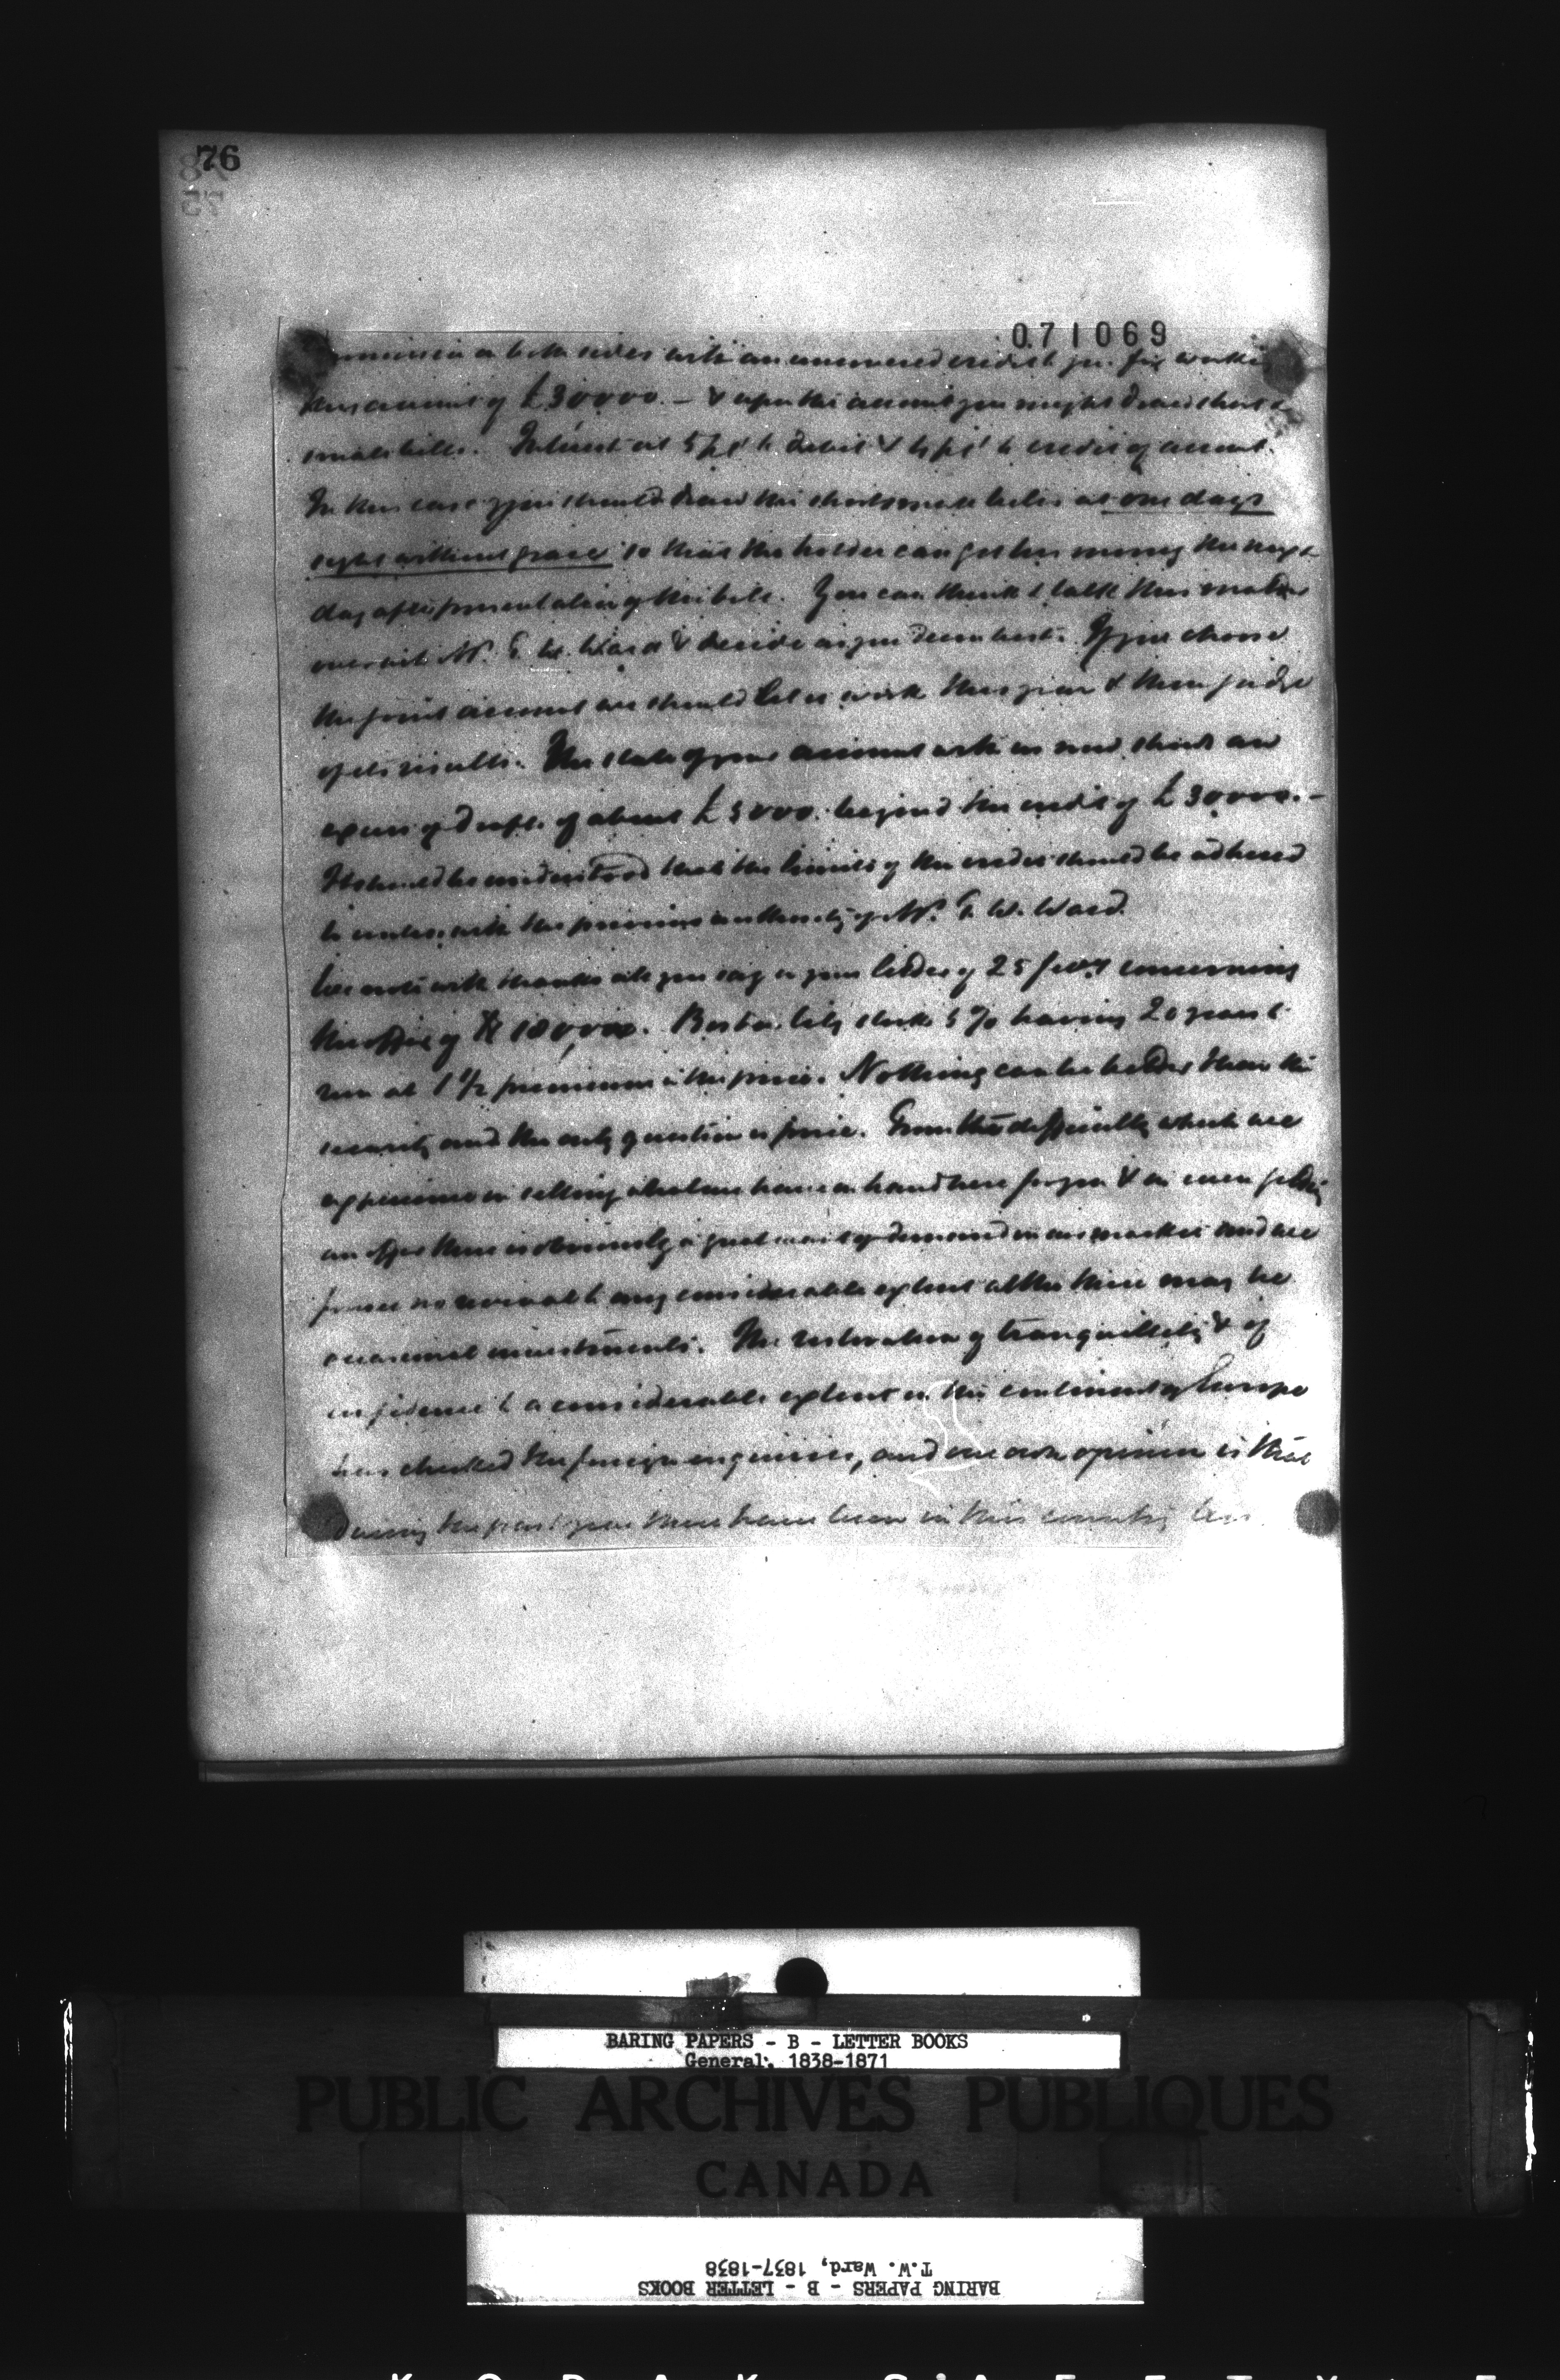 76
071069
on both sides with an uncovered credit to you for working
this account of £30000. — & upon this account you might draw short &
small bills. Interest at 5 pCt to debit & 4 pCt to credit of account.
In this case if you should draw the short small bills at one days
sight without grace so that the holder can get his money the next
day after presentation of the bill. You can think & talk this matter
over with Mr. T. W. Ward & decide as you deem best. If you choose
the joint account we should let it work this year & then judge
of its results. The state of your account with us now shows an
excess of drafts of about £5000. beyond the credit of £30000. —
It should be understood that the limits of the credit should be adhered
to unless with the previous authority of Mr. T. W. Ward.
We note with thanks all you say in your letter of 25 concerning
the offer of $ 180,000. Boston City stock 5 % having 20 years to
run at 1 1/2 premium is the price. Nothing can be better than the
security and the only question is price. From the difficulty which we
experience in selling what we have on hand here for you & in even getting
an offer there is obviously a great want of demand in our market and we
foresee no revival to any considerable extent altho there may be
occasional investments. The restoration of tranquillity & of
confidence to a considerable extent on the continent of Europe
has checked the foreign enquiries, and our own opinion is that
during the past year there have been in this country less
BARING PAPERS - B - LETTER BOOKS
General, 1838-1871
PUBLIC ARCHIVES PUBLIQUES
CANADA
BARING PAPERS - B - LETTER BOOKS
T.W. Ward, 1837-1838